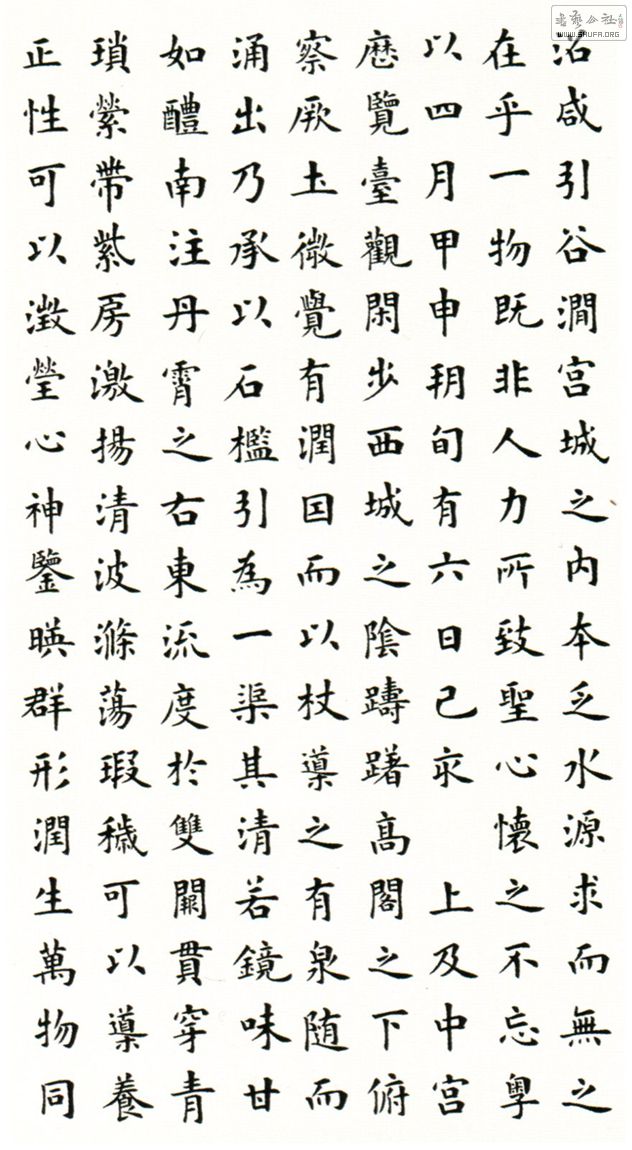 沼咸引谷澗宮城之内本乏水源求而無之
在乎一物既非人力所致聖心懷之不忘粤
以四月甲申朔旬有六日己亥 上及中宮
歷覽臺觀閑步西城之陰躊躇高閣之下俯
察厥土微覺有潤因而以杖導之有泉随而
涌出乃承以石檻引為一渠其清若鏡味甘
如醴南注丹霄之右東流度於雙闕貫穿青
瑣縈帶紫房激揚清波滌蕩瑕穢可以導養
正性可以澂瑩心神鑒暎群形潤生萬物同
書藝公社
WWW.SHUFA.ORG